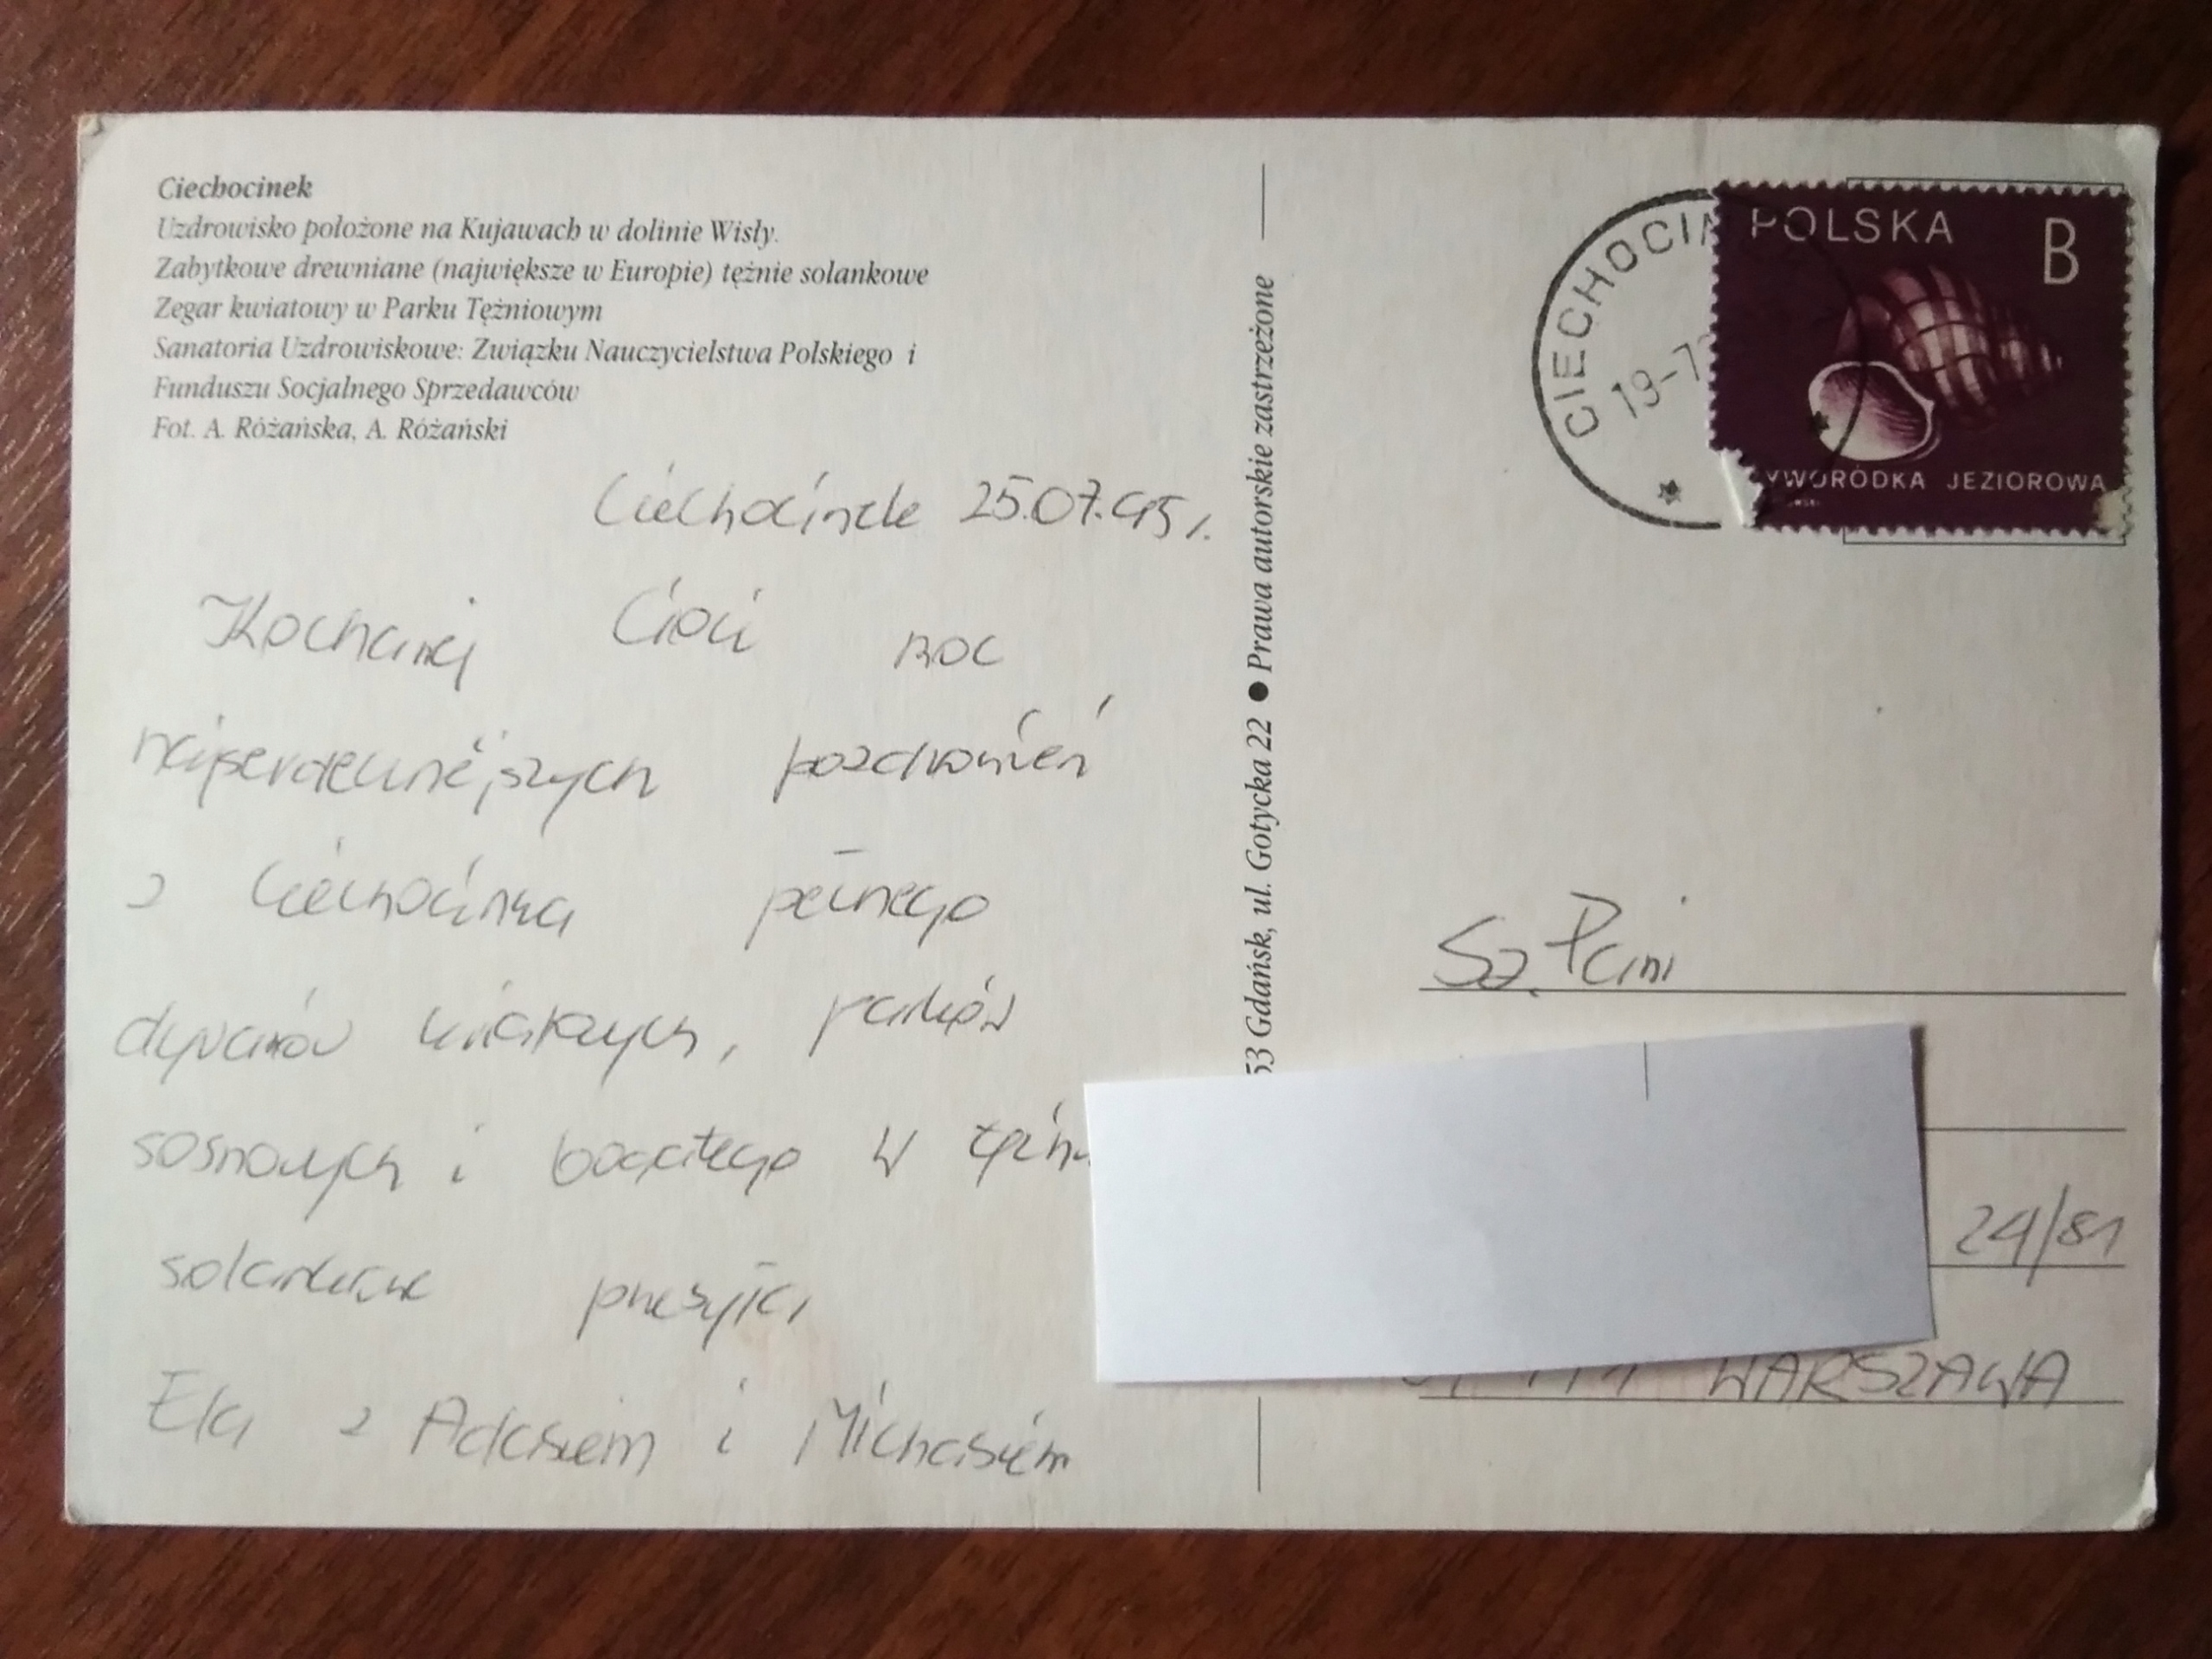 Ciechocinek
Uzdrowisko położone na Kujawach w dolinie Wisły.
Zabytkowe drewniane (największe w Europie) tężnie solankowe
Zegar kwiatowy w Parku Tężniowym
Sanatoria Uzdrowiskowe: Związku Nauczycielstwa Polskiego i
Funduszu Socjalnego Sprzedawców
Fot. A. Różańska, A. Różański
Ciechocinek 25.07.95 r.
Kochanej Cioci moc
najserdeczniejszych pozdrowień
z Ciechocinka pełnego
dywanów kwiatowych, parków
sosnowych i bogatego w
solankowe przesyła
Ela z Adasiem i Michasiem
53 Gdańsk, ul. Gotycka 22 ● Prawa autorskie zastrzeżone
CIECHOCIN
19-7
POLSKA B
YWORÓDKA JEZIOROWA
Sz. Pani
24/81
WARSZAWA